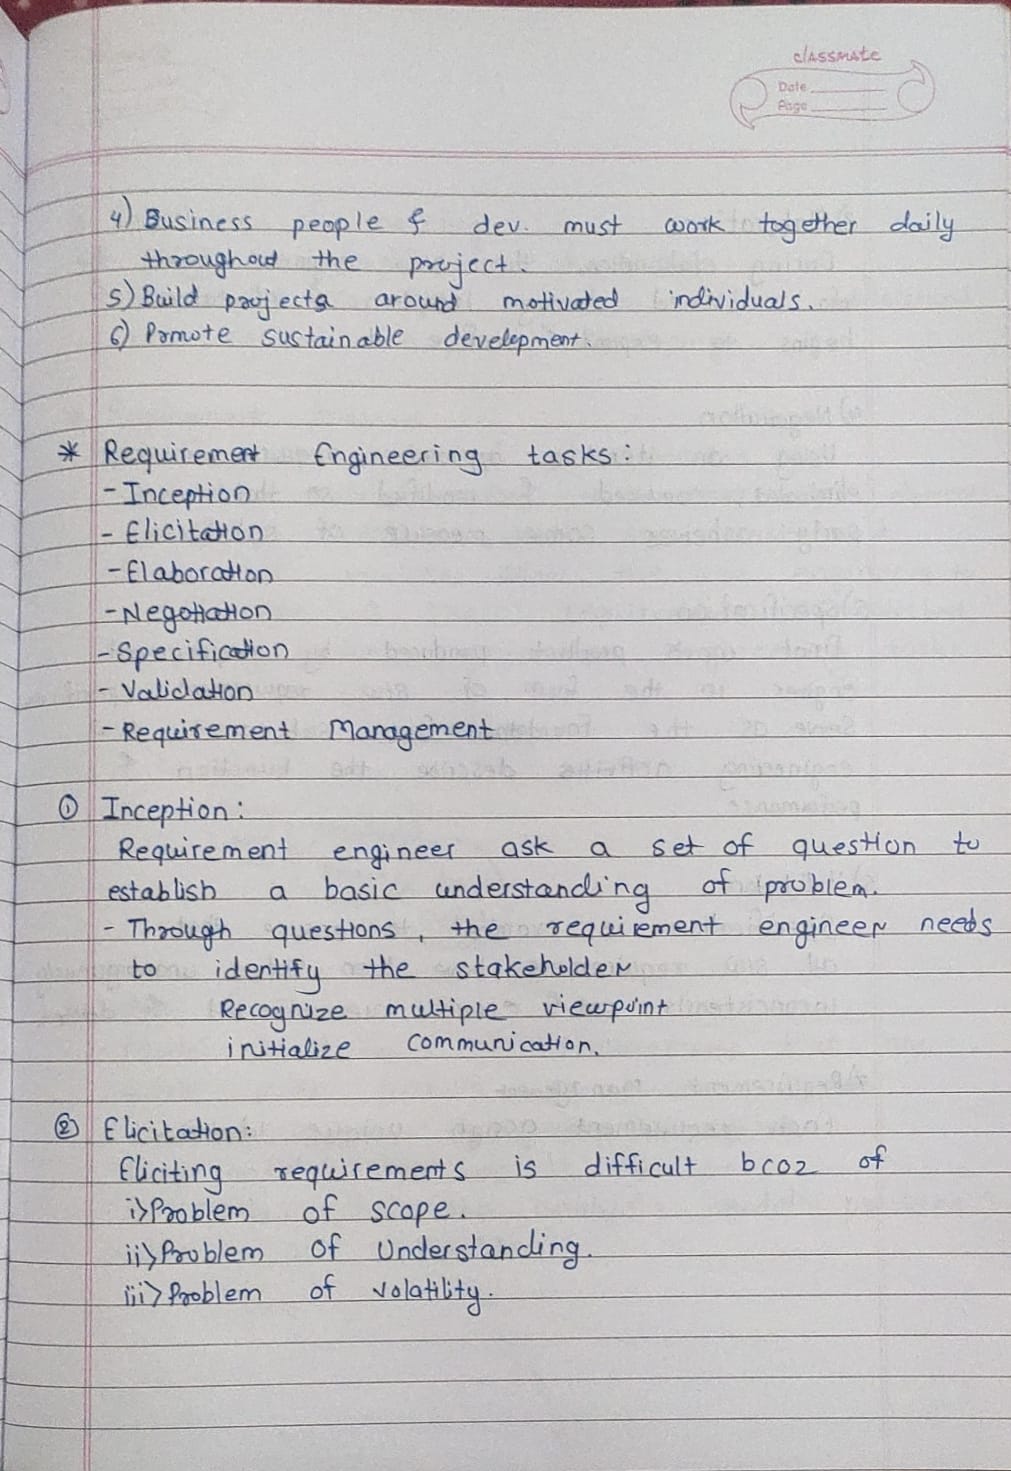 classmate
Date
Page
4) Business people & dev. must work together daily
throughout the project.
5) Build projects around motivated individuals.
6) Pomote sustainable development.
* Requirement Engineering tasks:
- Inception
- Elicitation
- Elaboration
- Negotiation
- Specification
- Validation
- Requirement Management
① Inception:
Requirement engineer ask a set of question to
establish a basic understanding of problem.
- Through questions, the requirement engineer needs
to identify the stakeholder
Recognize multiple viewpoint
initialize communication.
② Elicitation:
Eliciting requirements is difficult bcoz of
i> Problem of scope.
ii> Problem of Understanding.
iii> Problem of volatility.